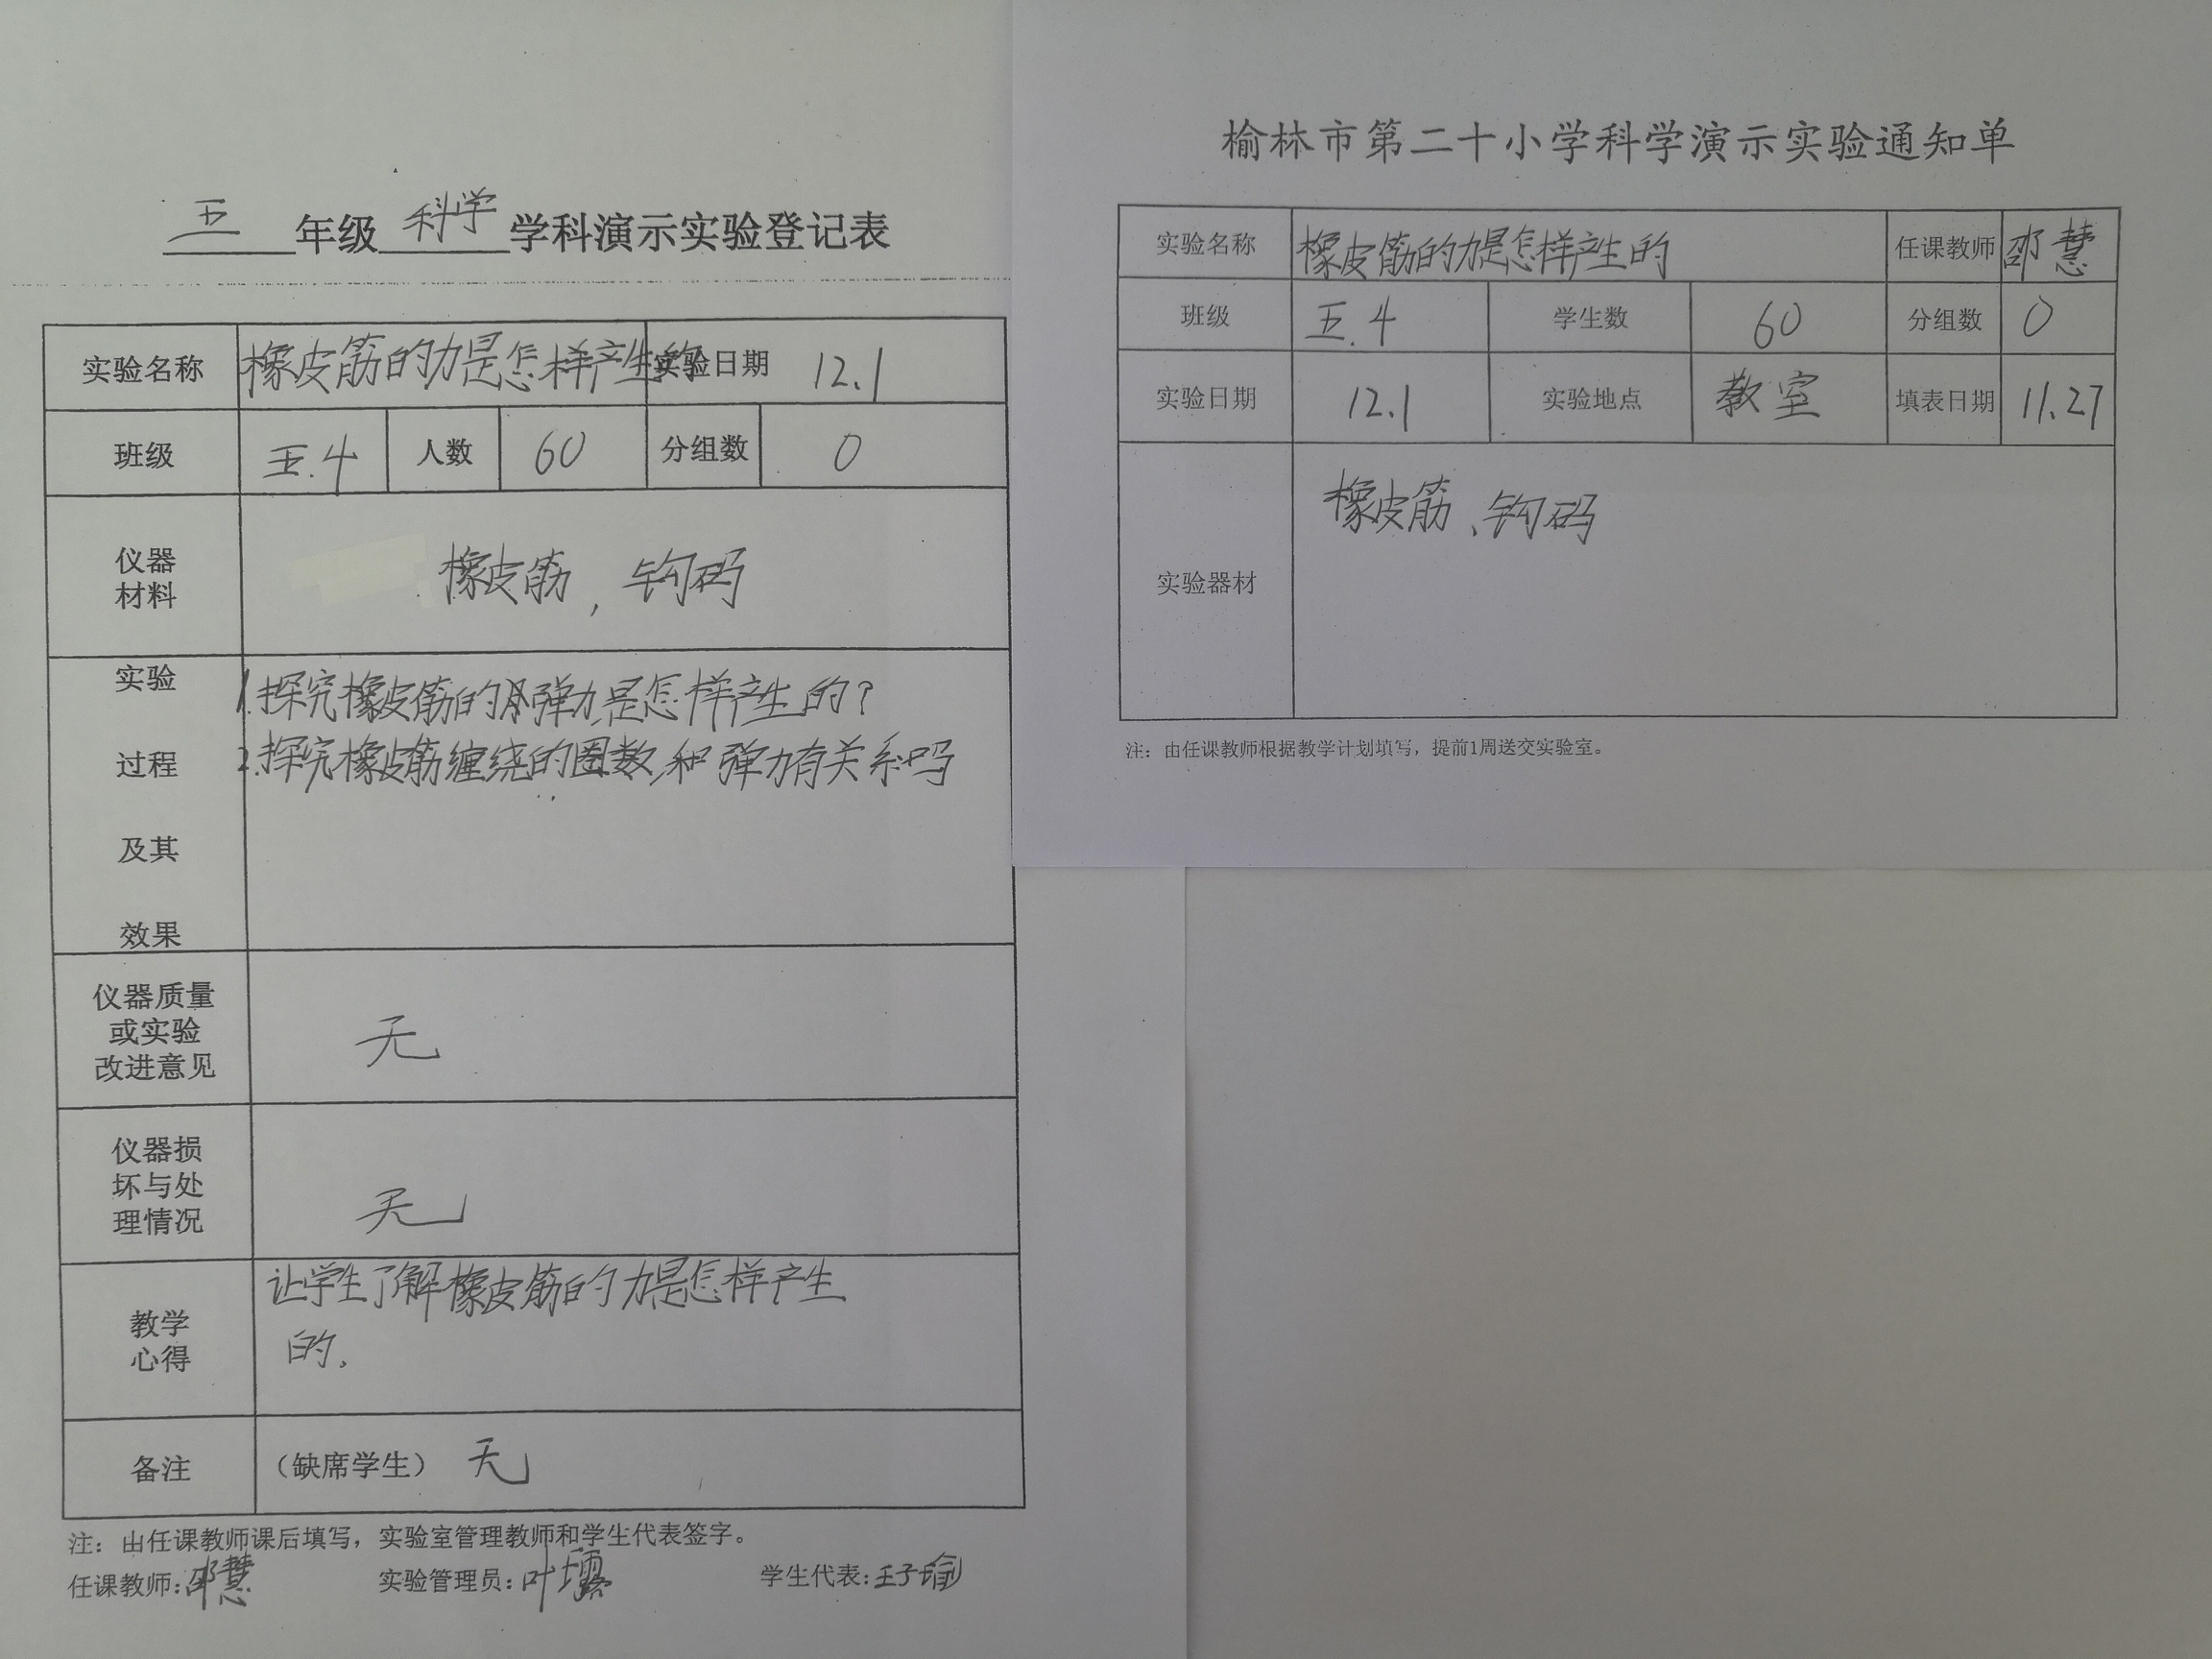 五年级科学学科演示实验登记表
实验名称 橡皮筋的力是怎样产生的 实验日期 12.1
班级 五.4 人数 60 分组数 0
仪器
材料
橡皮筋,钩码
实验
过程
及其
效果
1.探究橡皮筋的弹力是怎样产生的?
2.探究橡皮筋缠绕的圈数和弹力有关系吗
仪器质量
或实验
改进意见
无
仪器损
坏与处
理情况
无
教学
心得
让学生了解橡皮筋的力是怎样产生
的.
备注 (缺席学生) 无
注:由任课教师课后填写,实验室管理教师和学生代表签字。
任课教师:邵慧 实验管理员:叶 学生代表:王子瑜
榆林市第二十小学科学演示实验通知单
实验名称 橡皮筋的力是怎样产生的 任课教师 邵慧
班级 五.4 学生数 60 分组数 0
实验日期 12.1 实验地点 教室 填表日期 11.27
实验器材 橡皮筋、钩码
注:由任课教师根据教学计划填写,提前1周送交实验室。